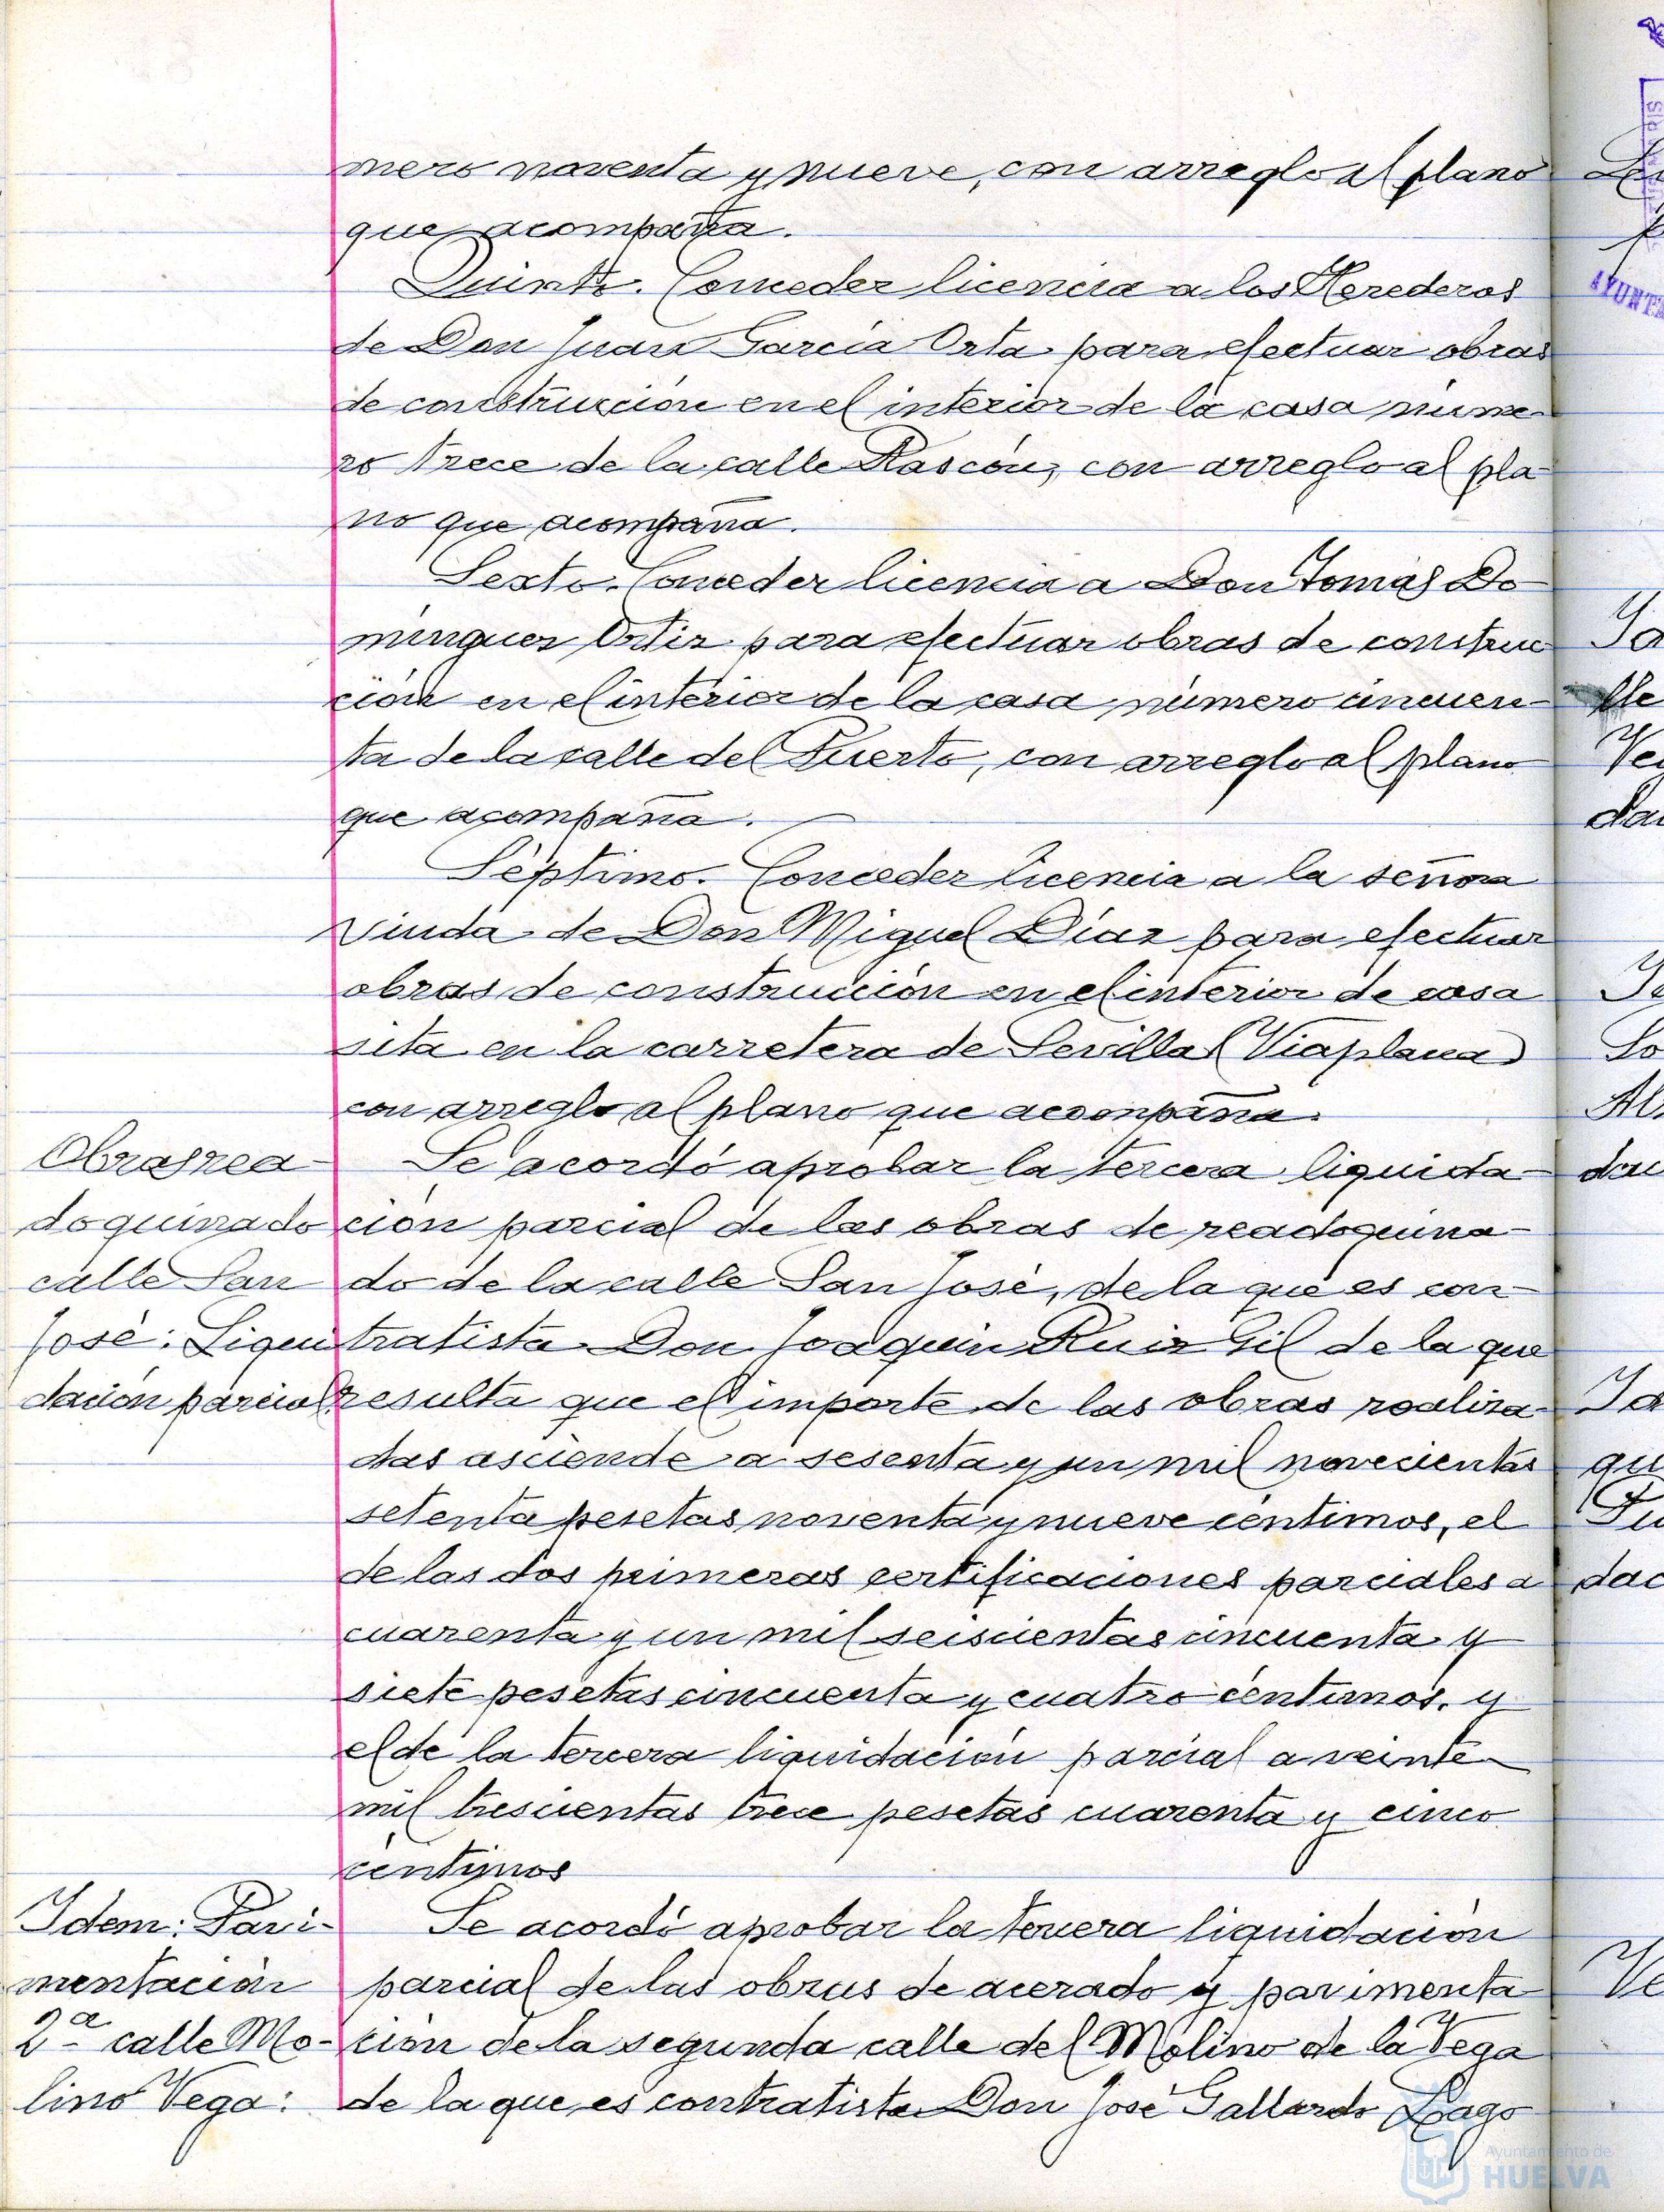 mero noventa y nueve, con arreglo al plano
que acompaña.
Quinto. Conceder licencia a los Herederos
de Don Juan García Orta para efectuar obras
de construcción en el interior de la casa núme-
ro trece de la calle Rascón, con arreglo al pla-
no que acompaña.
Sexto. Conceder licencia a Don Tomás Do-
minguez Ortiz para efectuar obras de construc-
ción en el interior de la casa número cincuen-
ta de la calle del Puerto, con arreglo al plano
que acompaña.
Séptimo. Conceder licencia a la señora
viuda de Don Miguel Díaz para efectuar
obras de construcción en el interior de casa
sita en la carretera de Sevilla (Viaplana)
con arreglo al plano que acompaña.
Obras rea-
doquinado
calle San
José: Liqui
dación parcial
Se acordó aprobar la tercera liquida-
ción parcial de las obras de readoquina-
do de la calle San José, de la que es con-
tratista Don Joaquin Ruiz Gil de la que
resulta que el importe de las obras realiza-
das asciende a sesenta y un mil novecientas
setenta pesetas noventa y nueve céntimos, el
de las dos primeras certificaciones parciales a
cuarenta y un mil seiscientas cincuenta y
siete pesetas cincuenta y cuatro céntimos, y
el de la tercera liquidación parcial a veinte
mil trescientas trece pesetas cuarenta y cinco
céntimos
Idem: Pavi-
mentación
2ª calle Mo-
lino Vega:
Se acordó aprobar la tercera liquidación
parcial de las obras de acerado y pavimenta-
ción de la segunda calle del Molino de la Vega
de la que es contratista Don José Gallardo Lago
Ayuntamiento de
HUELVA